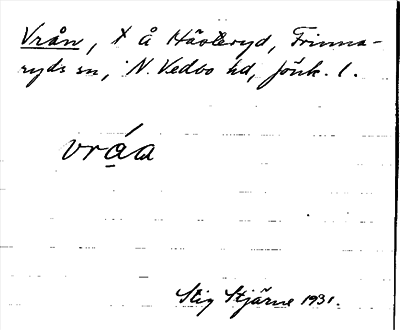 Vrån, x å Hästeryd, Frinna-
ryds sn, N. Vedbo hd, Jönk. l.
vrá̱a
Stig Stjärne 1931.